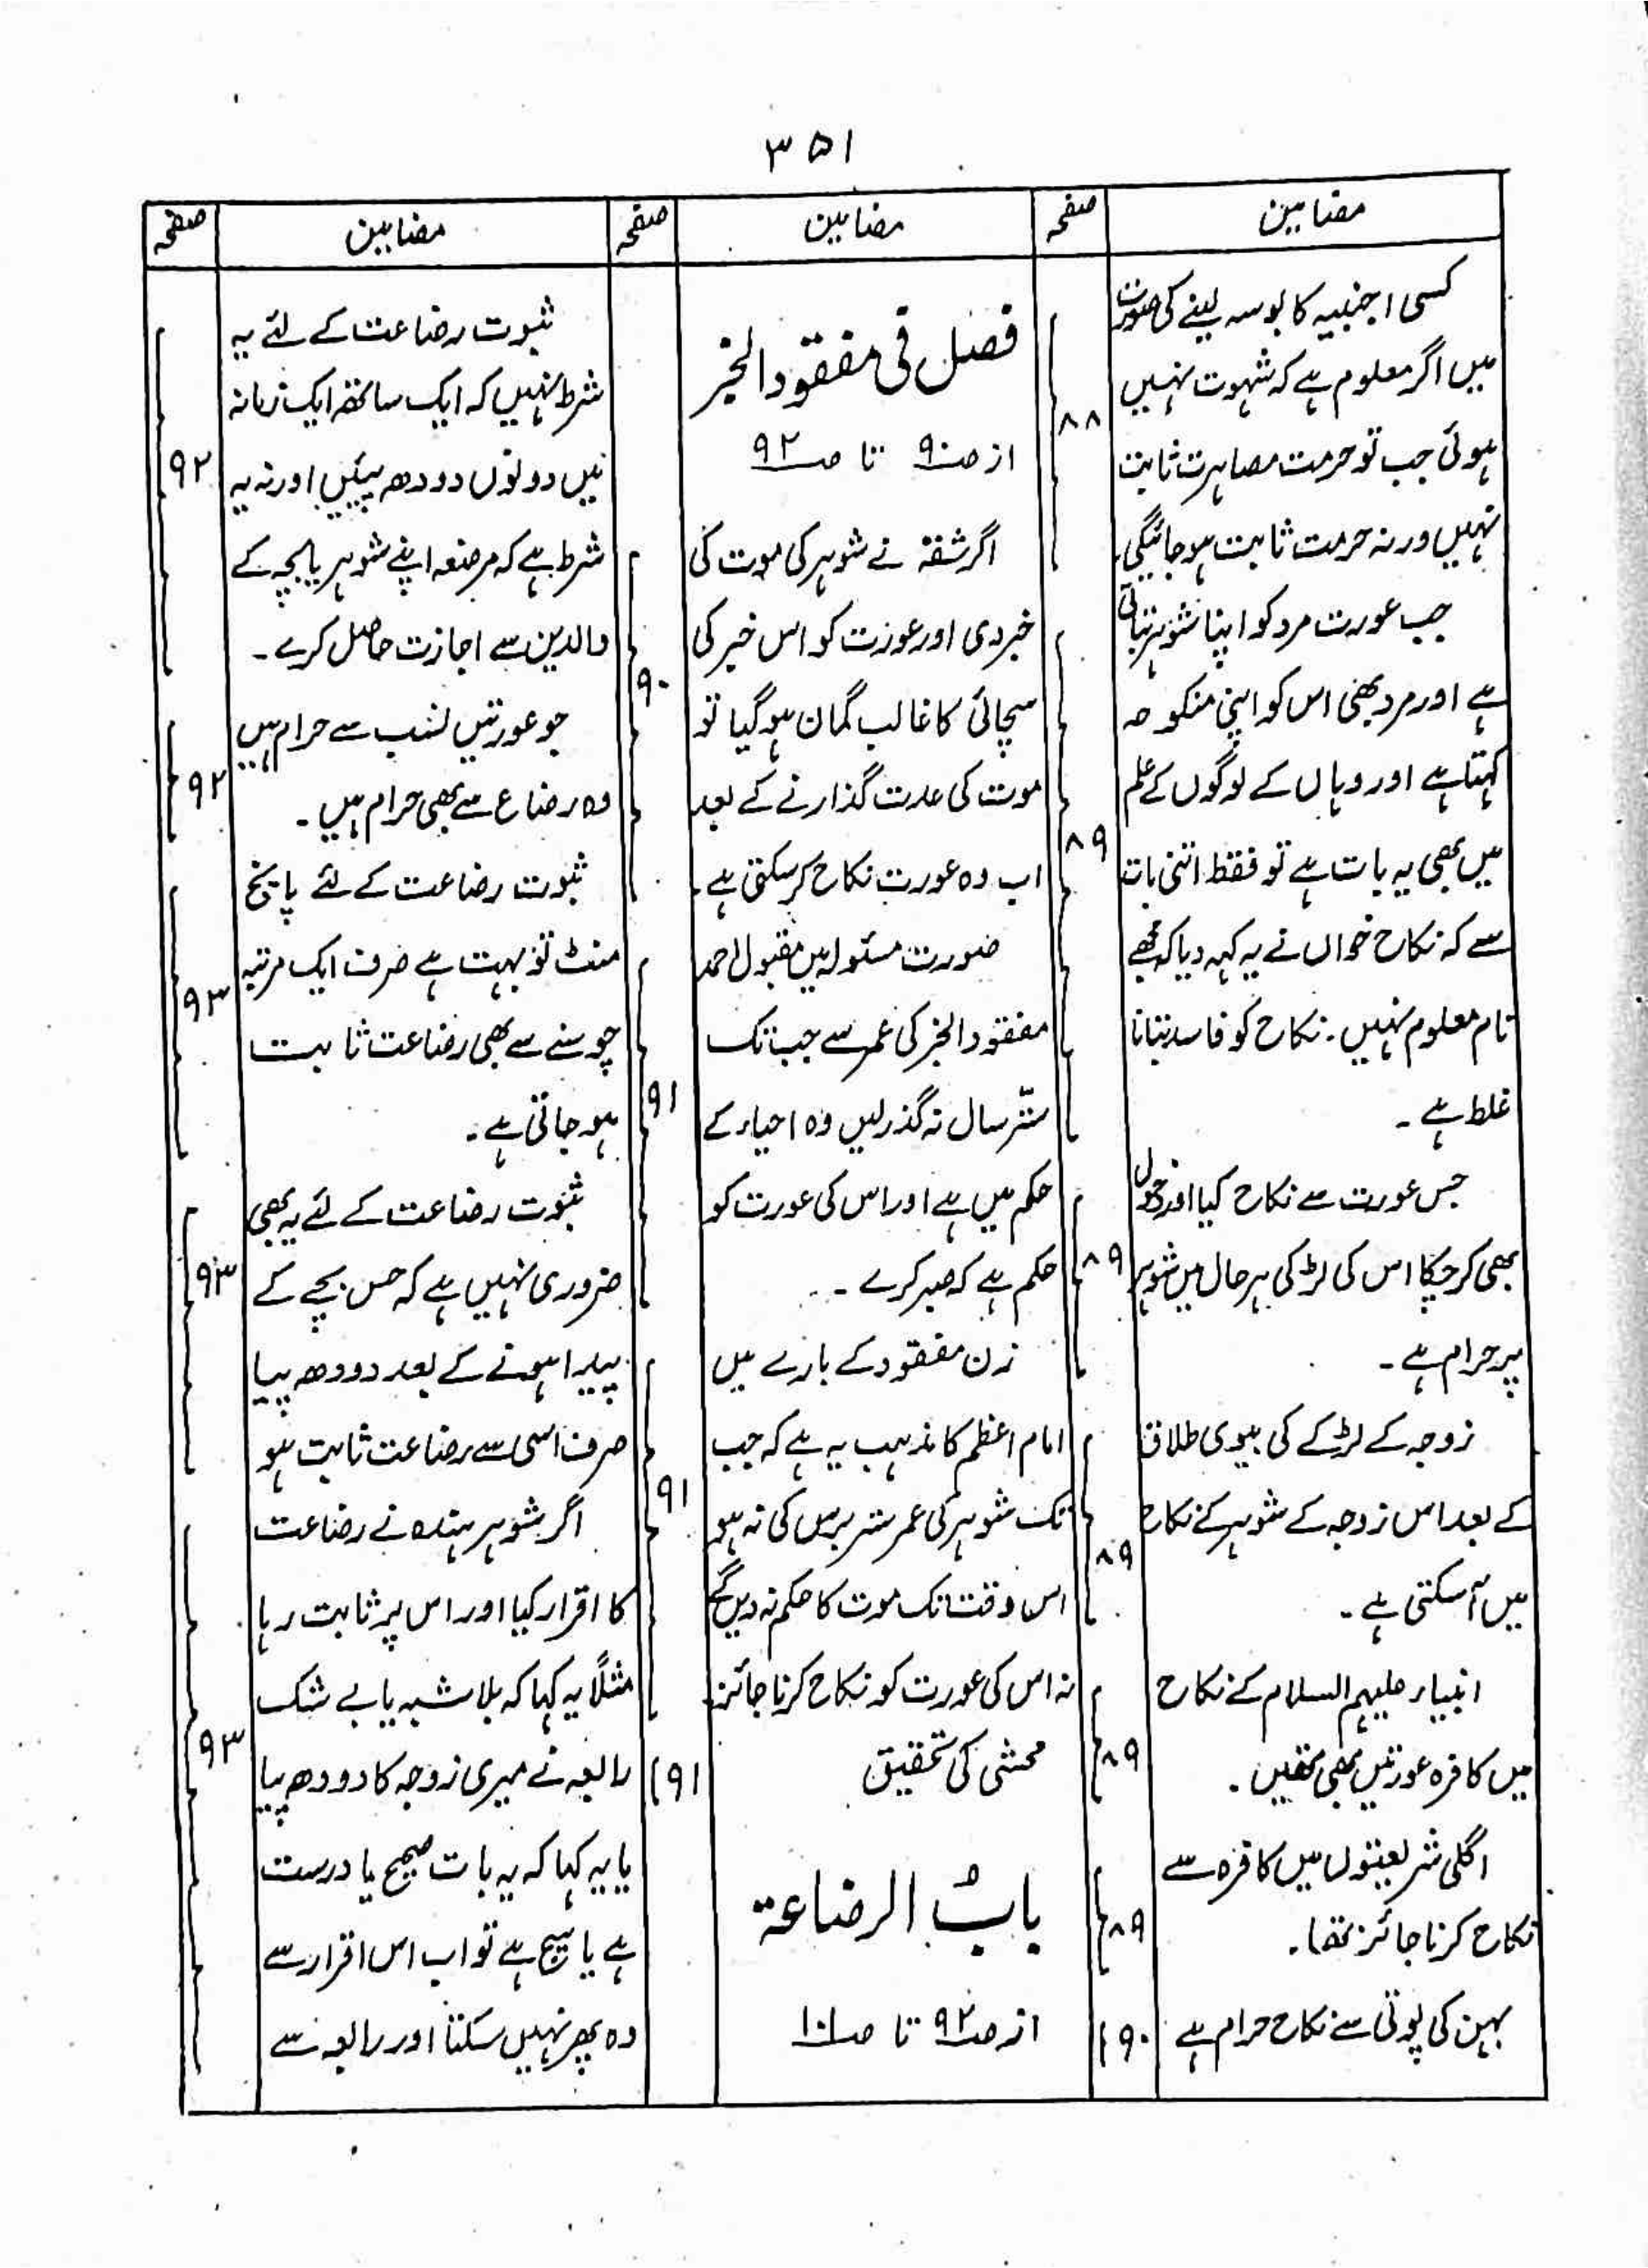 ۳۵۱
مضامین
صفحہ
مضامین
صفحہ
مضامین
صفحہ
کسی اجنبیہ کا بوسہ لینے کی صورت
میں اگر معلوم ہے کہ شہوت نہیں
ہوئی جب تو حرمت مصاہرت ثابت
نہیں ورنہ حرمت ثابت ہوجائیگی
۸۸
جب عورت مرد کو اپنا شوہر بتاتی
ہے اور مرد بھی اس کو اپنی منکوحہ
کہتا ہے اور وہاں کے لوگوں کے علم
میں بھی یہ بات ہے تو فقط اتنی بات
سے کہ نکاح خواں نے یہ کہہ دیا کہ مجھے
نام معلوم نہیں۔ نکاح کو فاسد بتانا
غلط ہے۔
۸۹
جس عورت سے نکاح کیا اور دخول
بھی کرچکا اس کی لڑکی ہر حال میں شوہر
پر حرام ہے۔
۸۹
زوجہ کے لڑکے کی بیوی طلاق
کے بعد اس زوجہ کے شوہر کے نکاح
میں آسکتی ہے۔
۸۹
انبیاء علیہم السلام کے نکاح
میں کافرہ عورتیں بھی تھیں۔
۸۹
اگلی شریعتوں میں کافرہ سے
نکاح کرنا جائز تھا۔
۸۹
بہن کی پوتی سے نکاح حرام ہے
۹۰
فصل فی مفقود الخبر
از صـ۹۰ تا صـ۹۲
اگر ثقہ نے شوہر کی موت کی
خبر دی اور عورت کو اس خبر کی
سچائی کا غالب گمان ہوگیا تو
موت کی عدت گذارنے کے بعد
اب وہ عورت نکاح کرسکتی ہے۔
۹۰
صورت مسئولہ میں مقبول احمد
مفقود الخبر کی عمر سے جب تک
ستّر سال نہ گذر لیں وہ احیاء کے
حکم میں ہے اور اس کی عورت کو
حکم ہے کہ صبر کرے۔
۹۱
زن مفقود کے بارے میں
امام اعظم کا مذہب یہ ہے کہ جب
تک شوہر کی عمر ستر برس کی نہ ہو
اس وقت تک موت کا حکم نہ دیں گے
نہ اس کی عورت کو نکاح کرنا جائز۔
۹۱
محشی کی تحقیق
۹۱
بابُ الرضاعۃ
از صـ۹۲ تا صـ۱۰۱
ثبوت رضاعت کے لئے یہ
شرط نہیں کہ ایک ساتھ ایک زمانہ
میں دونوں دودھ پئیں اور نہ یہ
شرط ہے کہ مرضعہ اپنے شوہر یا بچہ کے
والدین سے اجازت حاصل کرے۔
۹۲
جو عورتیں نسب سے حرام ہیں
وہ رضاع سے بھی حرام ہیں۔
۹۲
ثبوت رضاعت کے لئے پانچ
منٹ تو بہت ہے صرف ایک مرتبہ
چوسنے سے بھی رضاعت ثابت
ہوجاتی ہے۔
۹۳
ثبوت رضاعت کے لئے یہ بھی
ضروری نہیں ہے کہ جس بچے کے
پیدا ہونے کے بعد دودھ پیا
صرف اسی سے رضاعت ثابت ہو
۹۳
اگر شوہر ہندہ نے رضاعت
کا اقرار کیا اور اس پر ثابت رہا
مثلاً یہ کہا کہ بلاشبہ یا بے شک
رابعہ نے میری زوجہ کا دودھ پیا
یا یہ کہا کہ یہ بات صحیح یا درست
ہے یا سچ ہے تو اب اس اقرار سے
وہ پھر نہیں سکتا اور رابعہ سے
۹۳